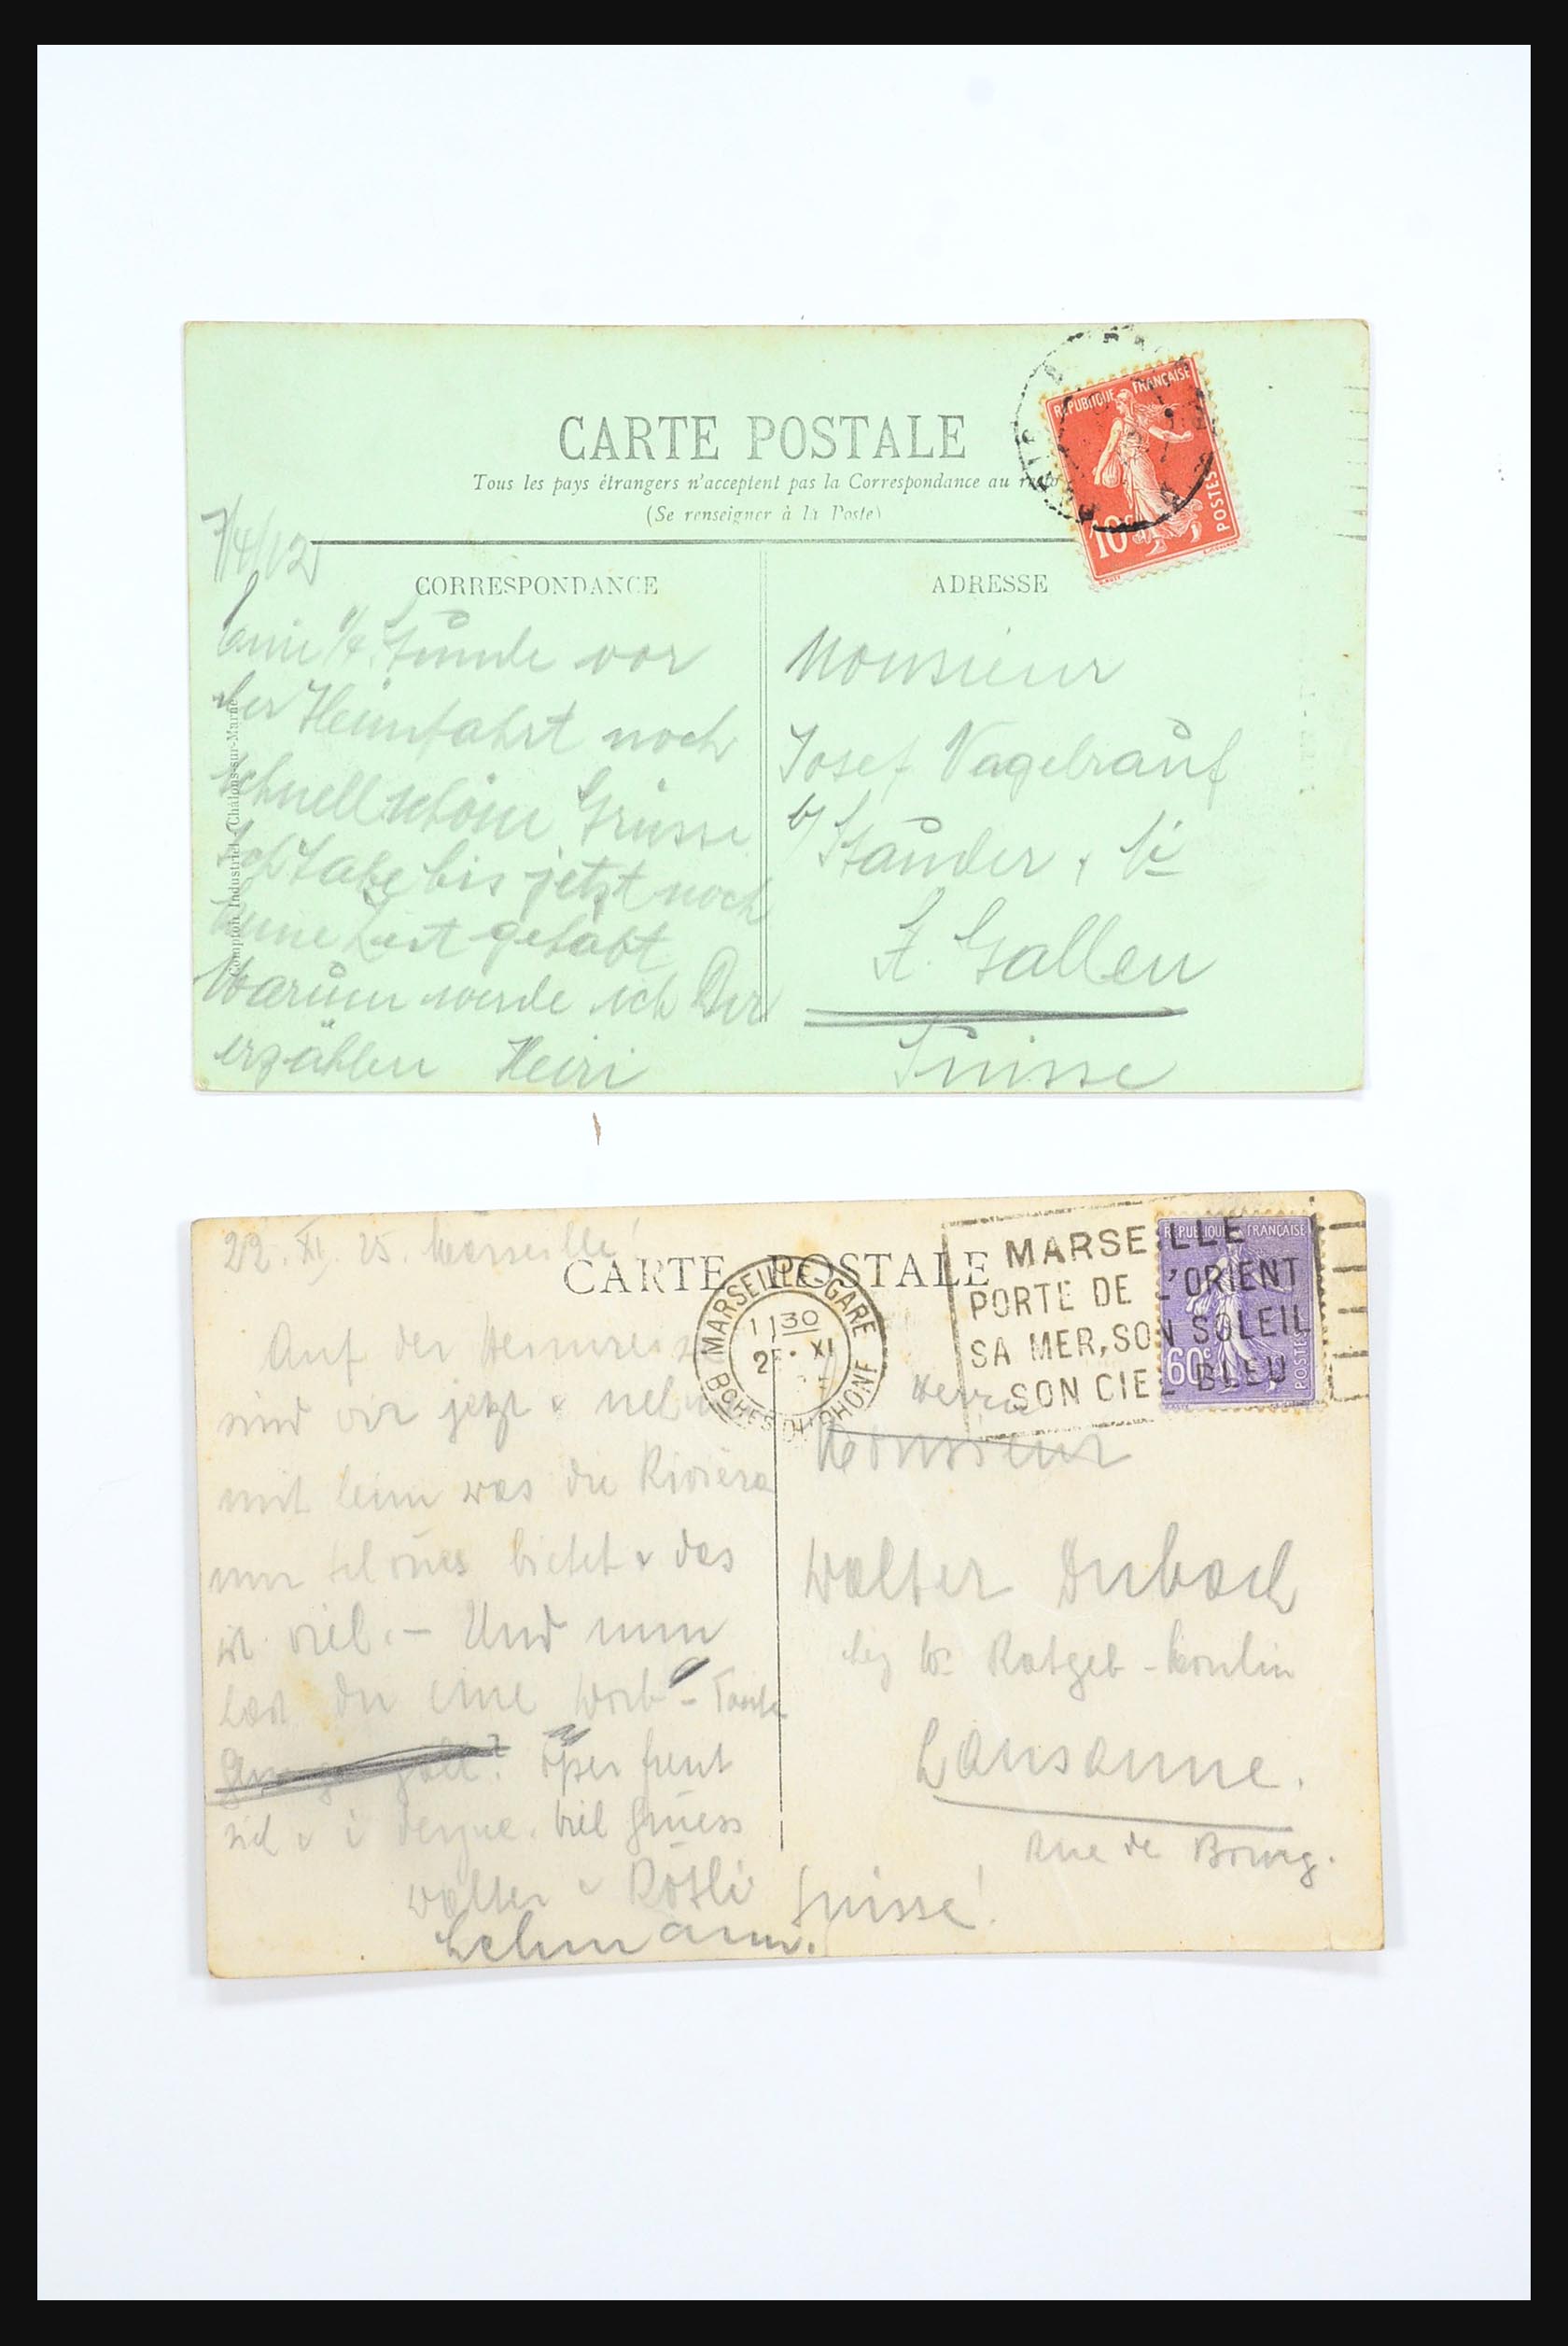 CARTE POSTALE
Tous les pays étrangers n'acceptent pas la Correspondance au recto
(Se renseigner à la Poste)
RÉPUBLIQUE FRANÇAISE
10c
POSTES
7/4/12
CORRESPONDANCE
1/4 Stunde vor
der Heimfahrt noch
schnell schöne Grüsse
Ich habe bis jetzt noch
keine Zeit gehabt
Warum werde ich Dir
erzählen Heiri
Compton Industriel - Châlons-sur-Marne
ADRESSE
Monsieur
Josef
b/ Stauder & Cie
St. Gallen
Suisse
22. XI. 25. Marseille!
CARTE POSTALE
MARSEILLE-GARE
11 30
25 XI
BCHES DU RHONE
MARSEILLE
PORTE DE L'ORIENT
SA MER, SON SOLEIL
SON CIEL BLEU
RÉPUBLIQUE FRANÇAISE
60c
POSTES
Auf der Heimreise
sind wir jetzt &
mit heim was die Riviera
nur schönes bietet & das
ist viel. - Und nun
hast du eine
freut
sich
viel Grüess
Walter & Rösli
Lehmann.
Herrn
Monsieur
Walter Dubach
Ratgeb - Moulin
Lausanne.
Rue de Bourg.
Suisse!